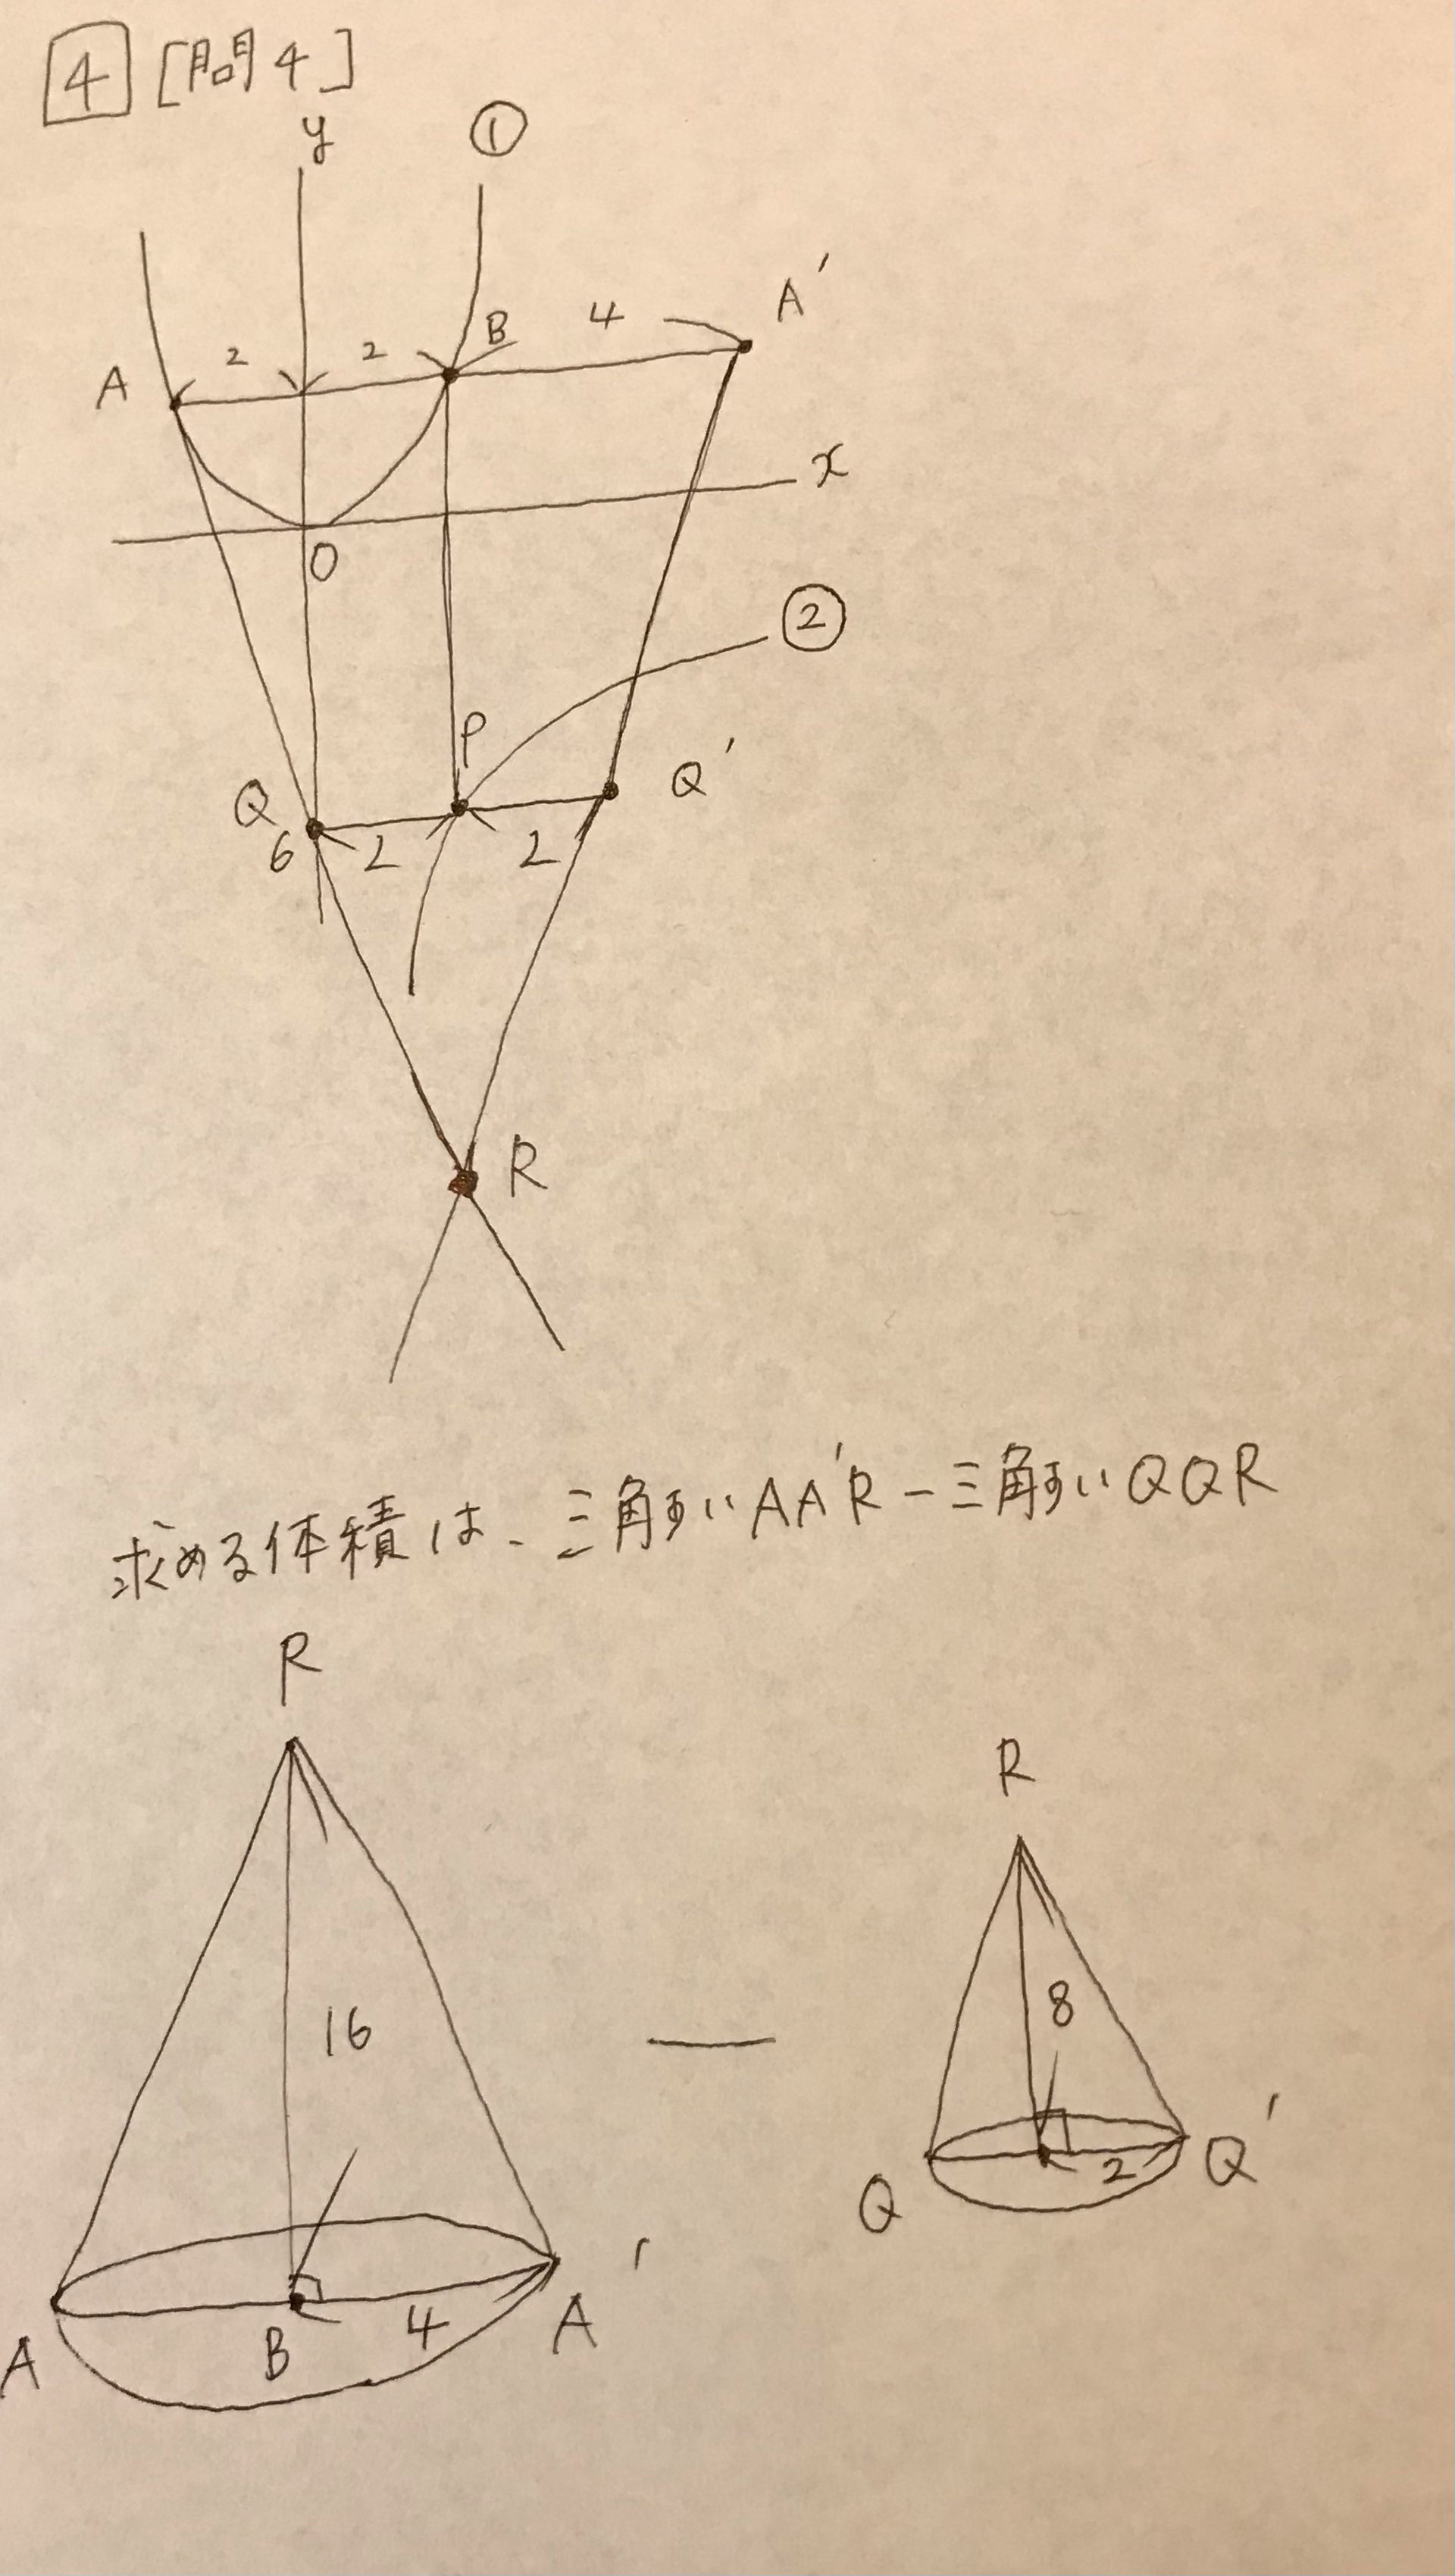 4 [問4]
y
①
A'
A 2 2 B 4
x
O
②
P
Q Q'
6 2 2
R
求める体積は、三角すい AA'R - 三角すい QQR
R
R
16 — 8
2
Q Q'
4
A B A'